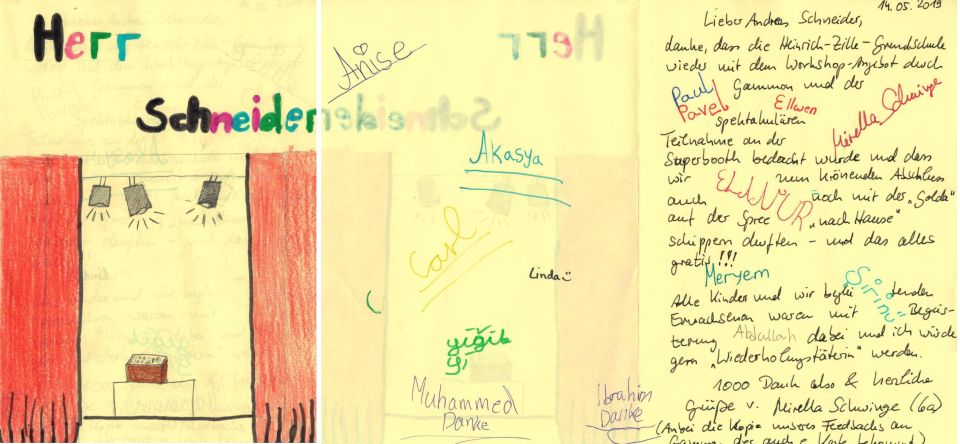 Herr
Schneider
Anise
Akasya
Carl
Linda
yiğit
yi
Muhammed
Danke
Ibrahim
Danke
14.05.2019
Lieber Andreas Schneider,
danke, dass die Heinrich-Zille-Grundschule
wieder mit dem Workshop-Angebot durch
Paul
Gammon und der
Pavel
Ellwen
Mirella Schwinge
spektakulären
Teilnahme an der
Superbooth bedacht wurde und dass
wir zum krönenden Abschluss
auch noch mit der „Golda"
auf der Spree „nach Hause"
schippern durften – und das alles
gratis!!!
Meryem
Sirin
Alle Kinder und wir begleitenden
Erwachsenen waren mit Begeis-
terung dabei und ich würde
Abdallah
gern „Wiederholungstäterin" werden.
1000 Dank also & herzliche
Grüße v. Mirella Schwinge (6a)
(Anbei die Kopie unseres Feedbacks an